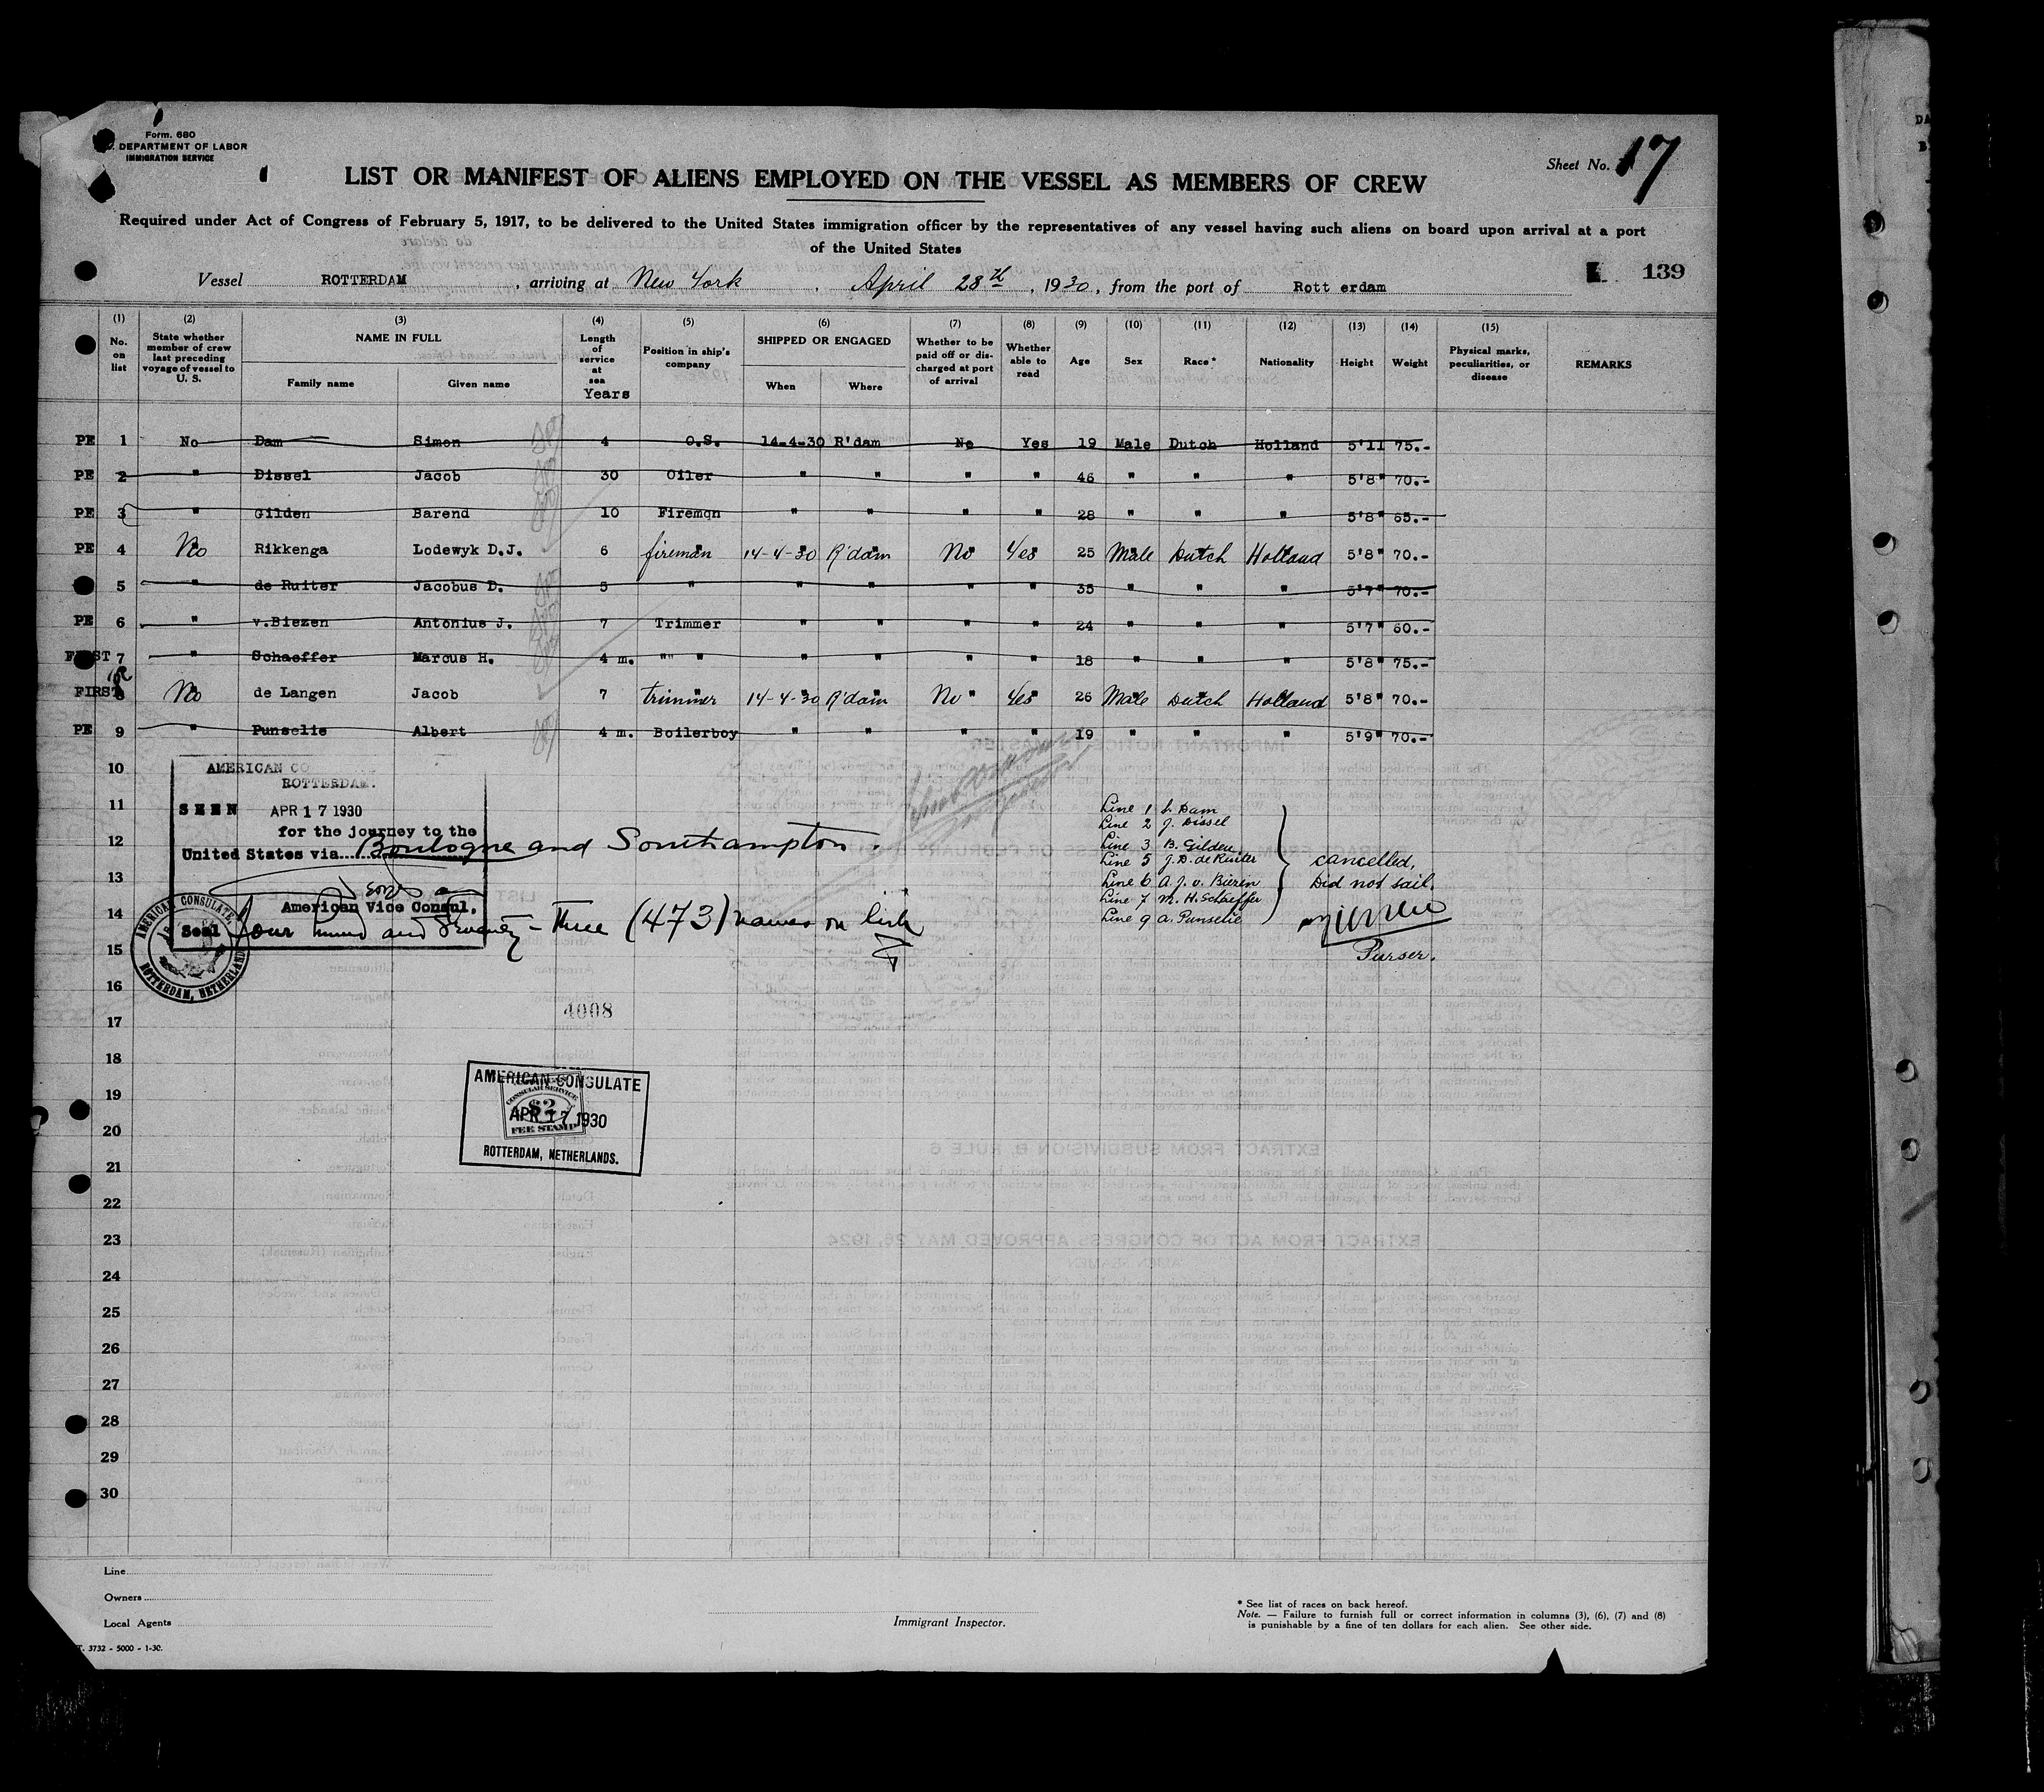 Form. 680
DEPARTMENT OF LABOR
IMMIGRATION SERVICE
Sheet No. 17
LIST OR MANIFEST OF ALIENS EMPLOYED ON THE VESSEL AS MEMBERS OF CREW
Required under Act of Congress of February 5, 1917, to be delivered to the United States immigration officer by the representatives of any vessel having such aliens on board upon arrival at a port
of the United States
139
Vessel ROTTERDAM, arriving at New York, April 28th, 1930, from the port of Rott erdam
(1) (2) (3) (4) (5) (6) (7) (8) (9) (10) (11) (12) (13) (14) (15)
No. on list
State whether member of crew last preceding voyage of vessel to U. S.
NAME IN FULL
Family name
Given name
Length of service at sea
Years
Position in ship's company
SHIPPED OR ENGAGED
When
Where
Whether to be paid off or discharged at port of arrival
Whether able to read
Age
Sex
Race*
Nationality
Height
Weight
Physical marks, peculiarities, or disease
REMARKS
PE 1 No Dam Simon 4 O.S. 14-4-30 R'dam No Yes 19 Male Dutch Holland 5'11 75.-
PE 2 " Dissel Jacob 30 Oiler " " " " 46 " " " 5'8" 70.-
PE 3 " Gilden Barend 10 Fireman " " " " 28 " " " 5'8" 65.-
PE 4 No Rikkenga Lodewyk D.J. 6 fireman 14-4-30 R'dam No Yes 25 Male Dutch Holland 5'8" 70.-
5 " de Ruiter Jacobus D. 5 " " " " " 35 " " " 5'7" 70.-
PE 6 " v.Biezen Antonius J. 7 Trimmer " " " " 24 " " " 5'7" 60.-
FIRST 7 " Schaeffer Marcus H. 4 m. "" " " " " " 18 " " " 5'8" 75.-
FIRST 8 No de Langen Jacob 7 trimmer 14-4-30 R'dam No " Yes 26 Male Dutch Holland 5'8" 70.-
PE 9 " Punselie Albert 4 m. Boilerboy " " " " 19 " " " 5'9" 70.-
10
11
12
13
14
15
16
17
18
19
20
21
22
23
24
25
26
27
28
29
30
AMERICAN CO
ROTTERDAM.
SEEN APR 17 1930
for the journey to the
United States via Boulogne and Southampton.
American Vice Consul.
Seal
Four hund and Seventy-three (473) names on list
AMERICAN CONSULATE,
ROTTERDAM, NETHERLANDS
Line 1 S. Dam
Line 2 J. Dissel
Line 3 B. Gilden
Line 5 J.D. de Ruiter
Line 6 A.J. v. Biezen
Line 7 M.H. Schaeffer
Line 9 A. Punselie
cancelled,
Did not sail.
Purser.
4008
AMERICAN CONSULATE
CONSULAR SERVICE
$2
APR 17 1930
FEE STAMP
ROTTERDAM, NETHERLANDS.
Line
Owners
Local Agents
Immigrant Inspector.
* See list of races on back hereof.
Note. — Failure to furnish full or correct information in columns (3), (6), (7) and (8)
is punishable by a fine of ten dollars for each alien. See other side.
3732 - 5000 - 1-30.